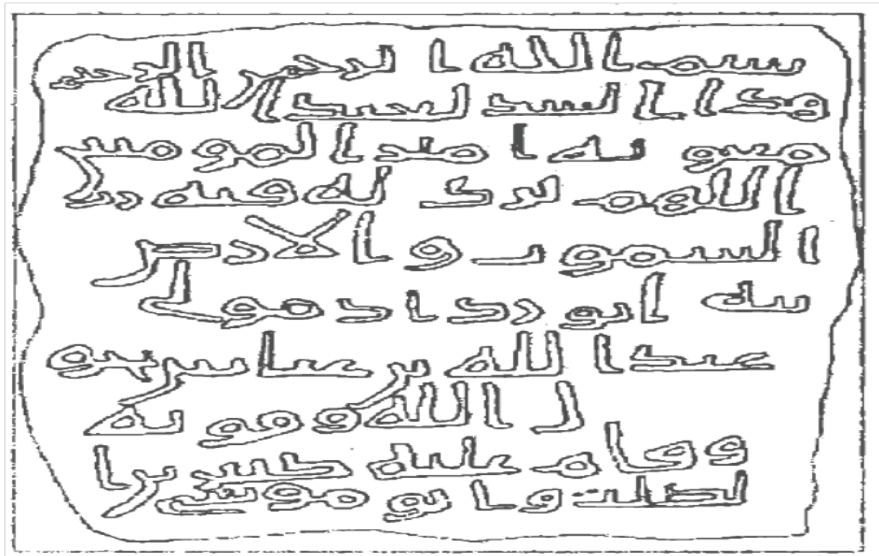 بسم الله الرحمن الرحيم
هذا السد لعبد الله
معوية امير المومنين
اللهم برك له فيه رب
السموت والارض
بنه ابو رداد مولى
عبد الله بن عباس بحو
ل الله وقوته
وقام عليه كثير بن ا
لصلت وابو موسى